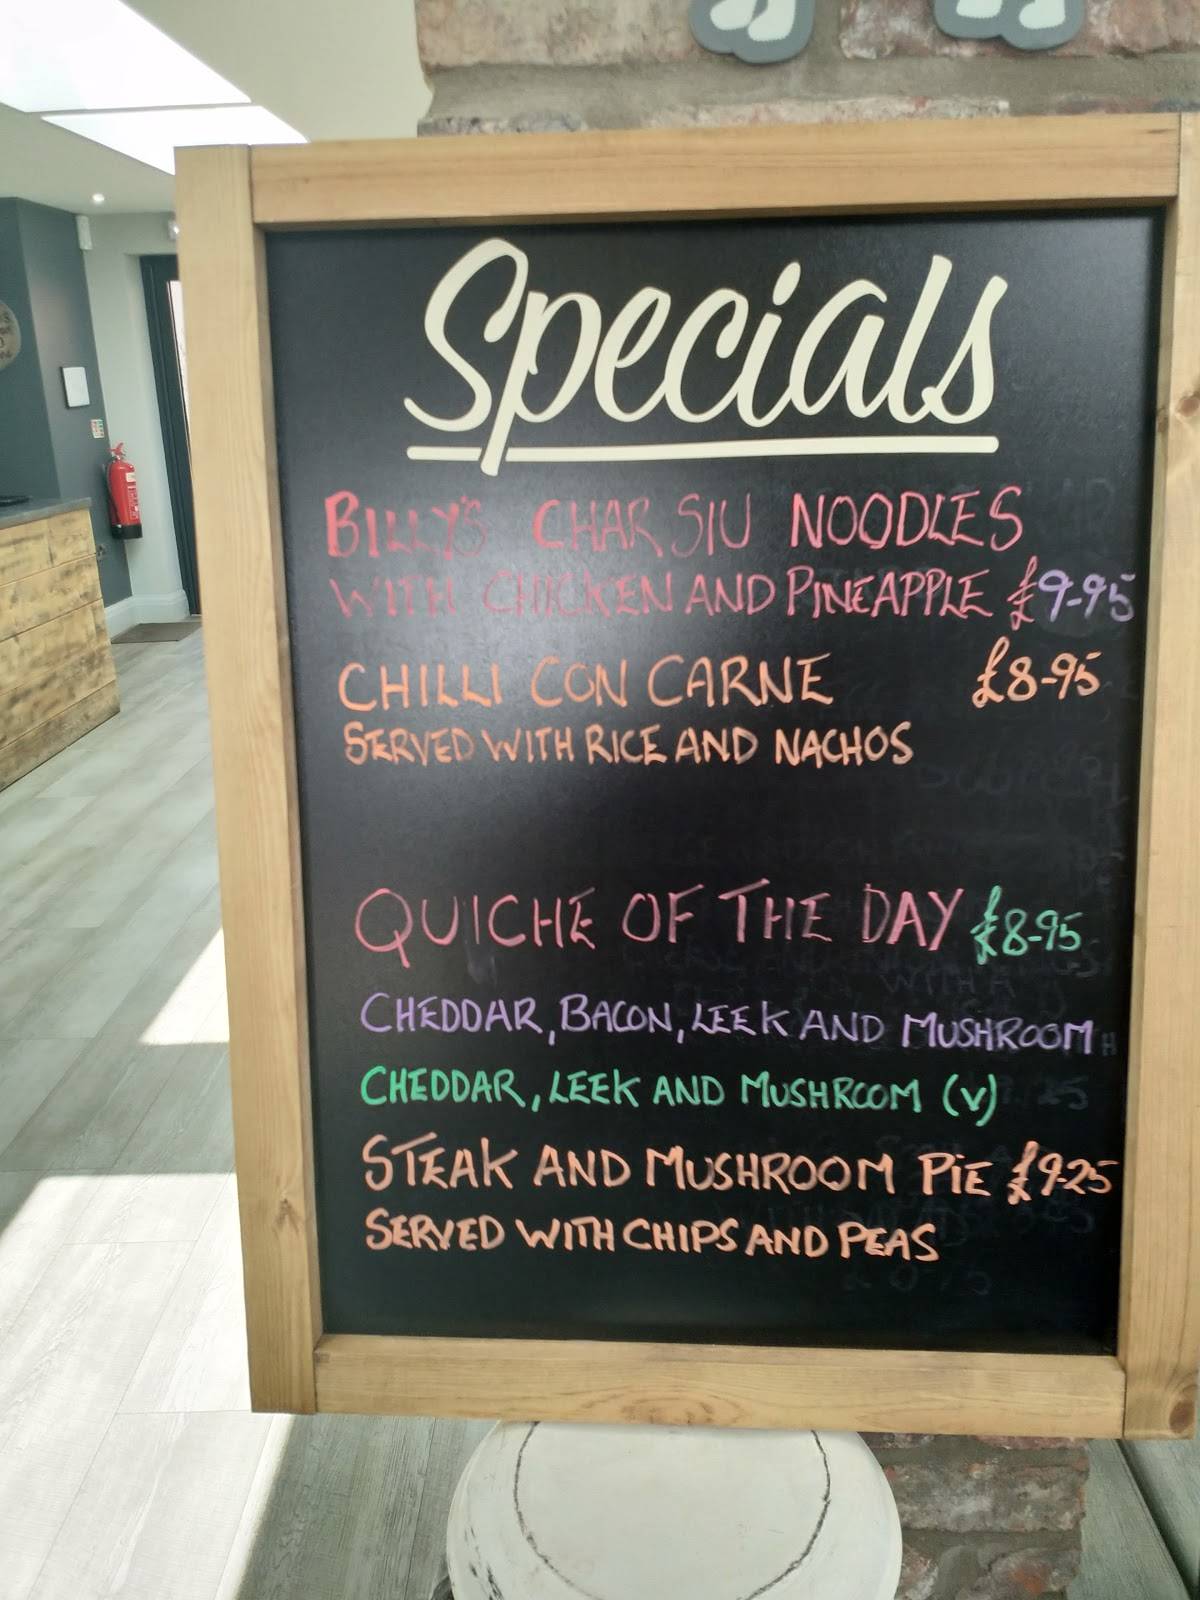 Specials
BILLY'S CHAR SIU NOODLES
WITH CHICKEN AND PINEAPPLE £9-95
CHILLI CON CARNE £8-95
SERVED WITH RICE AND NACHOS
QUICHE OF THE DAY £8-95
CHEDDAR, BACON, LEEK AND MUSHROOM
CHEDDAR, LEEK AND MUSHROOM (V)
STEAK AND MUSHROOM PIE £9-25
SERVED WITH CHIPS AND PEAS